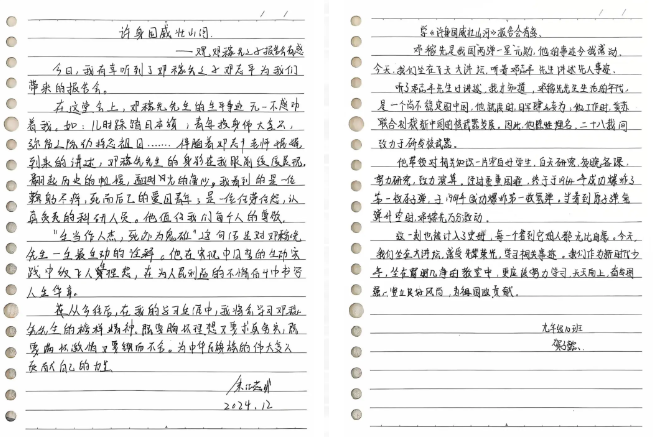 许身国威壮山河
——观邓稼先之子报告会有感
今日,我有幸听到了邓稼先之子邓志平为我们
带来的报告会。
在这堂会上,邓稼先先生的生平事迹无一不感动
着我。如:儿时踩踏日本旗;青年投身伟大复兴,
弥留之际仍特念祖国……伴随着邓志平老师慷慨
到来的讲述,邓稼先先生的身影在我眼前
翻起历史的帷幔,我看到的是一位
鞠躬不瘁,死而后已的爱国青年;是一位任劳任怨,认
真负责的科研人员。他值得我们每个人的尊敬。
“生当作人杰,死亦为鬼雄”这句话是对邓稼先
先生一生最生动的诠释。他在实现中国梦的生动实
践中放飞人生理想,在为人民利益的不懈奋斗中书写
人生华章。
我从今往后,在我的学习生涯中,我将学习邓稼
先先生的榜样精神。既要胸怀理想又要求真务实;既
要满怀激情又要锲而不舍。为中华民族的伟大复兴
贡献自己的力量
2024.12
导《许身国威壮山河》报告会有感
邓稼先是我国两弹一星元勋,他的事迹令我感动。
今天,我们坐在百大讲坛,听着邓志平先生讲述先人事迹。
听了邓志平先生的讲述,我才知道,邓稼先先生生活的年代,
是一个尚不稳定的中国,他就读时,日军肆意妄为;他工作时,美苏
联合封裁新中国的核武器发展。因此,他隐姓埋名,二十八载间
致力于研制核武器。
他带领对相关知识一片空白的学生,白天研究,夜晚备课,
努力研究,致力演算。经过重重困难,终于于1964年成功爆炸了
第一枚原子弹,于1967年成功爆炸第一枚氢弹。当看到原子弹氢
弹升空时,邓稼先万分激动。
这一刻也被计入了史册,每一个看到它的人都无比自豪。今天,
我们坐在大讲坛,落座先辈荣光,学习相关事迹。我们作为新时代少
年,坐在窗明几净的教室中,更应该努力学习,天天向上,奋发图
强,树立良好风尚,为祖国做贡献。